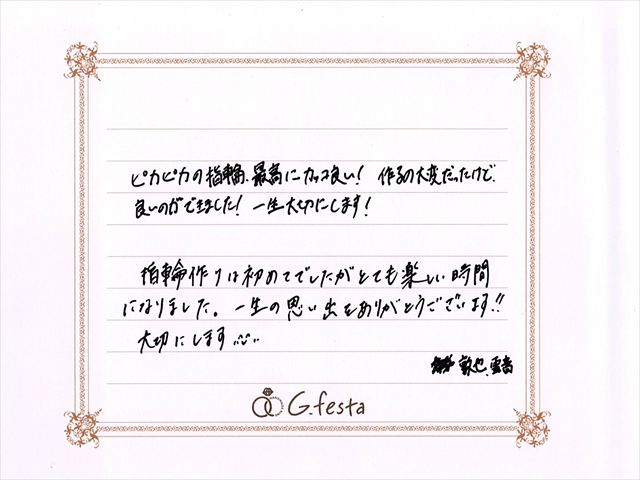 ピカピカの指輪、最高にカッコ良い! 作るの大変だったけど
良いのができました! 一生大切にします!
指輪作りは初めてでしたがとても楽しい時間
になりました。一生の思い出をありがとうございます!!
大切にします
G.festa